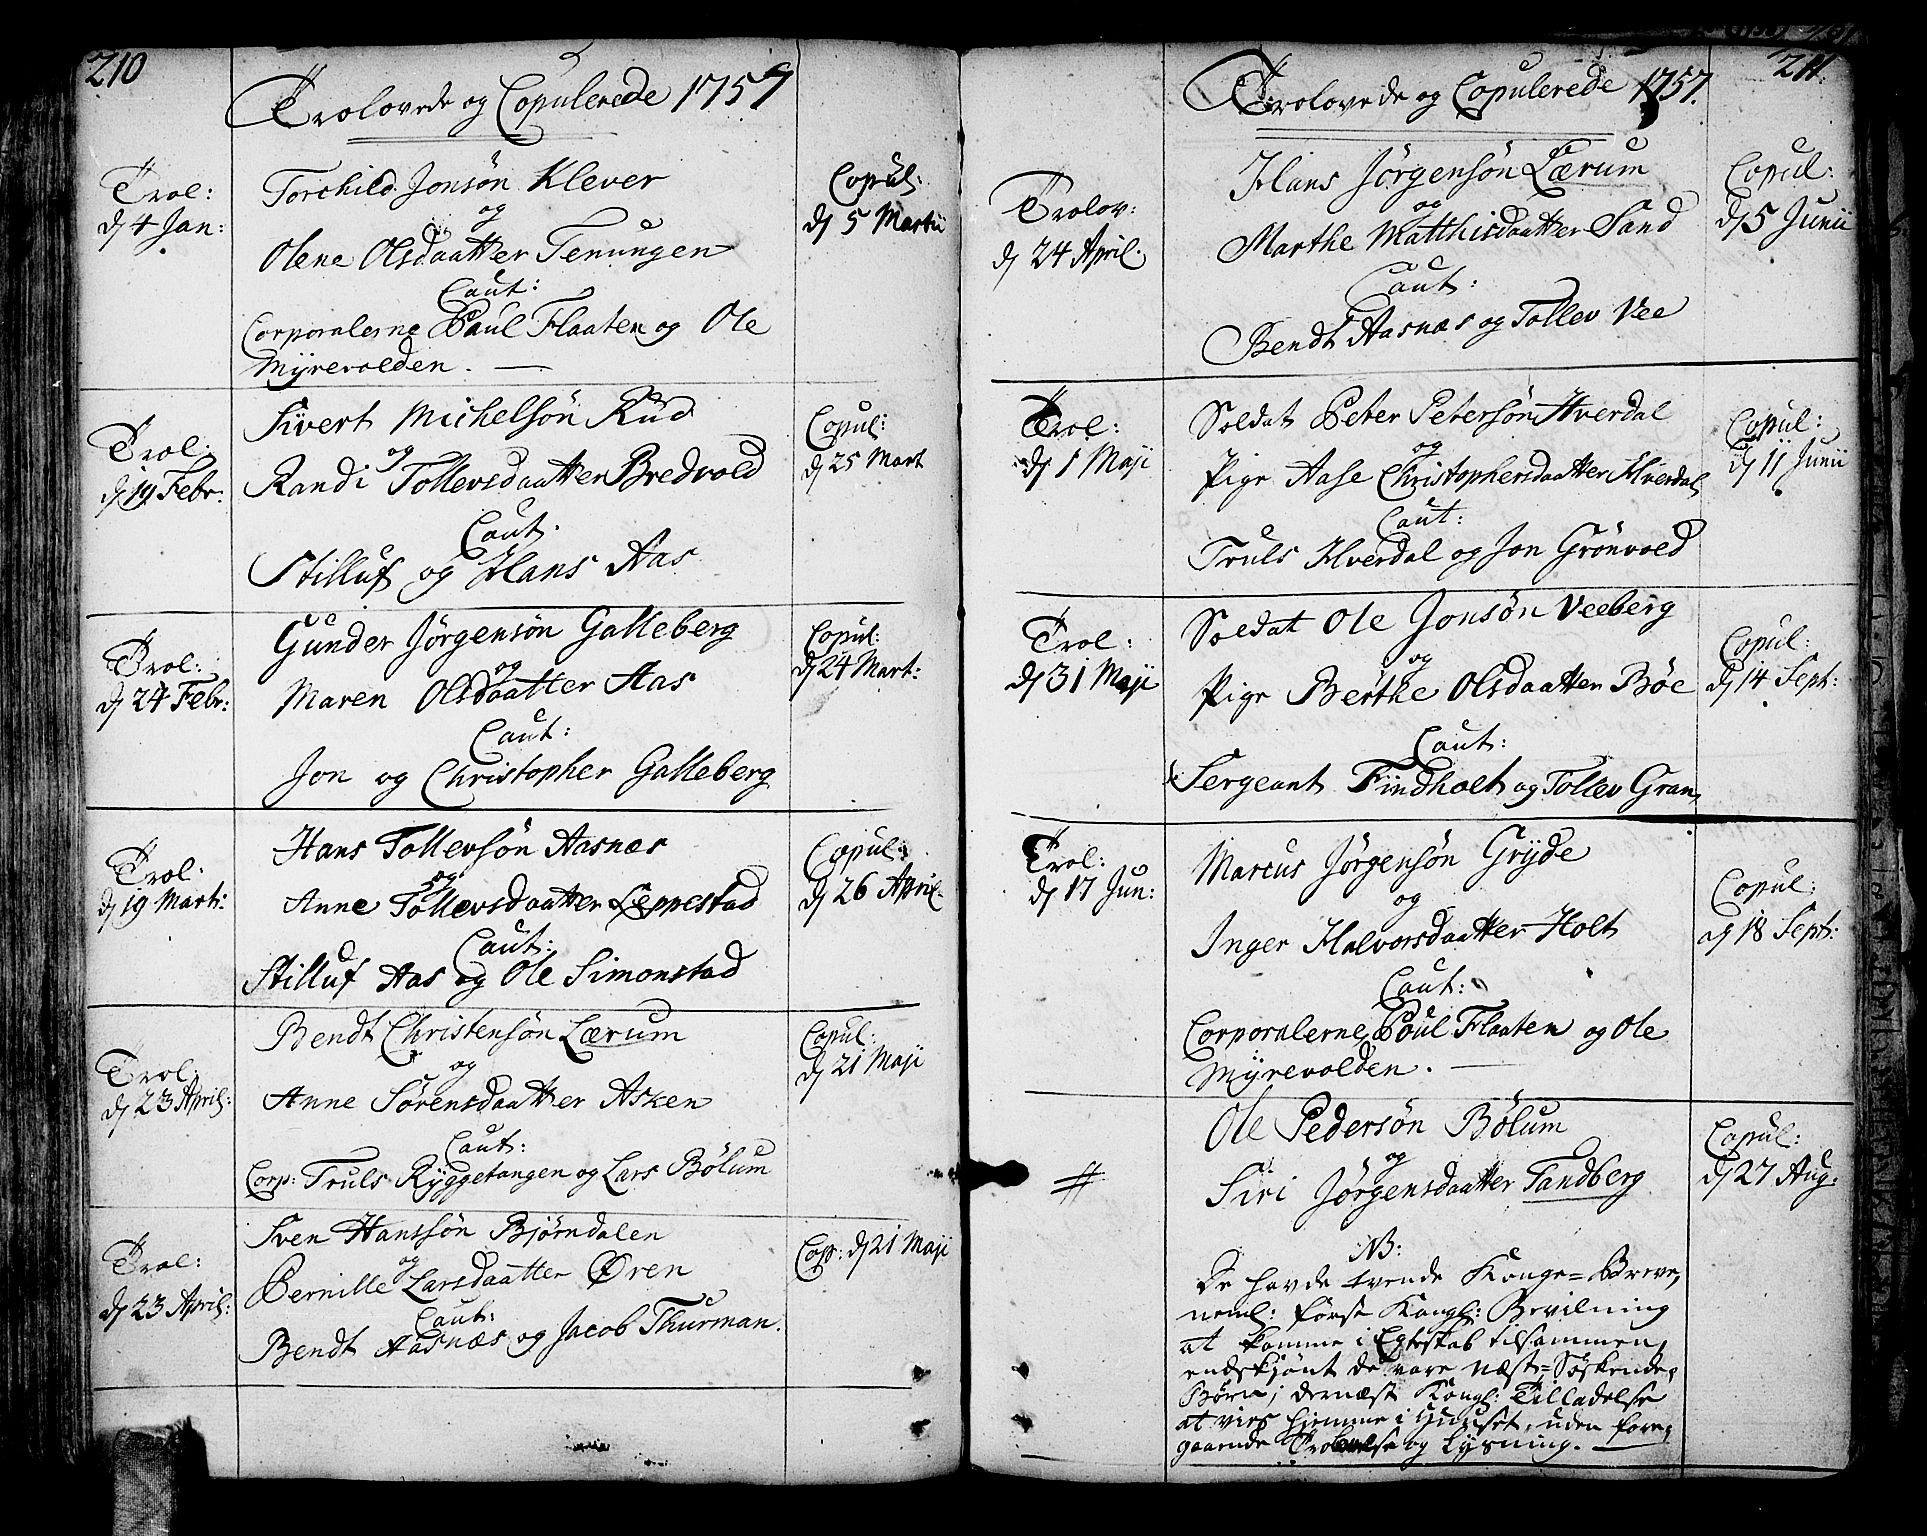 210
Trolovede og Copulerede 1757
Trol:
d 4 Jan:
Torchild Jonsøn Klever
og
Olene Olsdaatter Tenungen
Caut:
Corporalerne Poul Flaaten og Ole
Myrevolden.
Copul:
d 5 Martii
Trol:
d 19 Febr:
Sivert Michelsøn Rud
og
Randi Tollevsdaatter Bredvold
Caut:
Stilluf og Hans Aas
Copul:
d 25 Mart
Trol:
d 24 Febr:
Gunder Jørgensøn Galleberg
og
Maren Olsdaatter Aas
Caut:
Jon og Christopher Galleberg
Copul:
d 24 Mart:
Trol:
d 19 Mart:
Hans Tollevsøn Aasnæs
og
Anne Tollevsdaatter Leppestad
Caut:
Stilluf Aas og Ole Simonstad
Copul:
d 26 April.
Trol
d 23 April:
Bendt Christensøn Lærum
og
Anne Sørensdaatter Asken
Caut:
Corp: Truls Ryggetangen og Lars Bølum
Copul:
d 21 Maji
Trol:
d 23 April:
Sven Hanssøn Bjørndalen
og
Pernille Larsdaatter Øren
Caut:
Bendt Aasnæs og Jacob Thurman.
Cop: d 21 Maji
211
Trolovede og Copulerede 1757.
Trolov:
d 24 April.
Hans Jørgensøn Lærum
og
Marthe Matthisdaatter Sand
Caut:
Bendt Aasnæs og Tollev Vee
Copul:
d 5 Junii
Trol:
d 1 Maji
Soldat Peter Petersøn Hverdal
og
Pige Aase Christophersdaatter Hverdal
Caut:
Truls Hverdal og Jon Grönvold
Copul:
d 11 Junii
Trol:
d 31 Maji
Soldat Ole Jonsøn Veeberg
og
Pige Berthe Olsdaatter Böe
Caut:
Sergeant Findholt og Tollev Gran
Copul:
d 14 Sept:
Trol:
d 17 Jun:
Marcus Jørgensøn Gryde
og
Inger Halvorsdaatter Holt
Caut:
Corporalerne Poul Flaaten og Ole
Myrevolden.
Copul:
d 18 Sept:
#
Ole Pedersøn Bølum
og
Siri Jørgensdaatter Sandberg
Copul:
d 27 Aug:
NB:
De havde tvende Konge=Breve,
neml: først Kongl: Bevilning
at komme i Egteskab tilsammen,
endskjønt de vare Næst=Søskende,
Børn; dernæst Kongl: Tilladelse
at vies hjemme i Huuset, uden fore,
gaaende Trolovelse og Lysning.